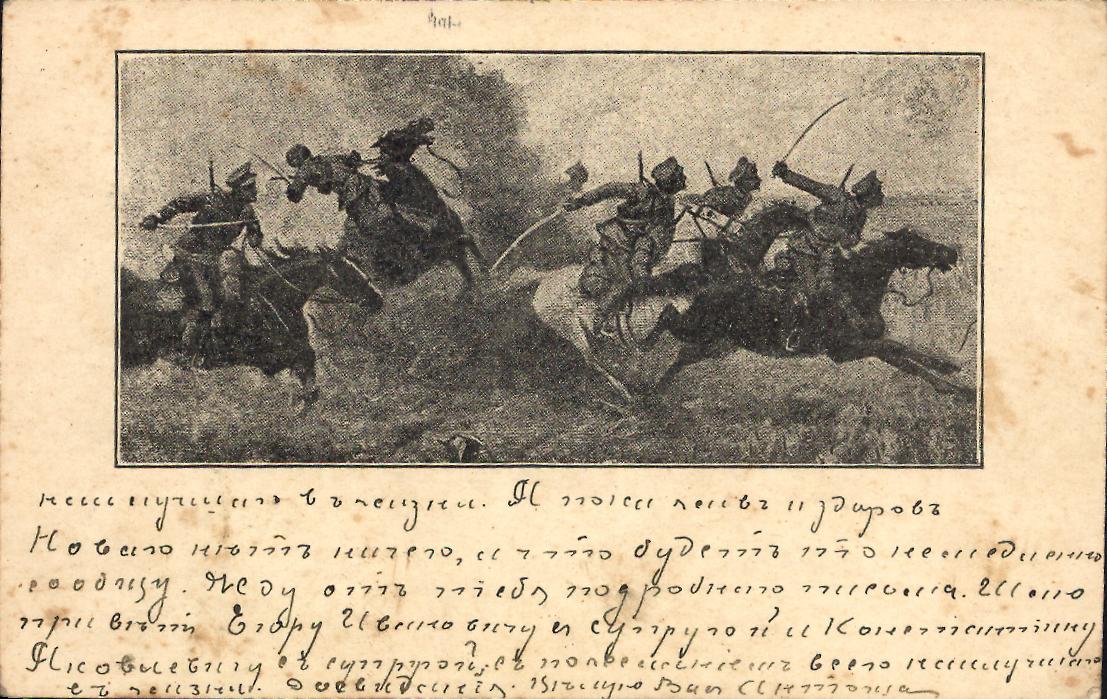 наилучшаго въ жизни. Я пока живъ и здоровъ
Новаго нѣтъ ничего, а что будетъ то немедленно
сообщу. Жду отъ тебя подробнаго письма. Шлю
привѣтъ Егору Ивановичу съ супругой и Константину
Яковлевичу съ супругой, съ пожеланіемъ всего наилучшаго
въ жизни. Досвиданія.